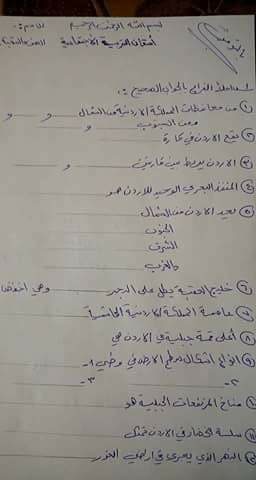 بسم الله الرحمن الرحيم
الاسم:
امتحان التربية الاجتماعية
بالتوفيق
املأ الفراغ بالجواب الصحيح:
① من محافظات المملكة الأردنية من الشمال و و
ومن الجنوب و
② تقع الاردن في قارة
③ الاردن يربط بين قارتي و
④ المنفذ البحري الوحيد للاردن هو
⑤ يحد الاردن من الشمال
الجنوب
الشرق
والغرب
⑥ خليج العقبة يطل على البحر وهي
⑦ عاصمة المملكة الاردنية الهاشمية
⑧ أعلى قمة جبلية في الاردن هي
⑨ انواع اشكال سطح الارض في وطني ١-
٢- ٣-
مناخ المرتفعات الجبلية هو
سلة الخضار في الاردن تمثل
النهر الذي يجري في اراضي الغور